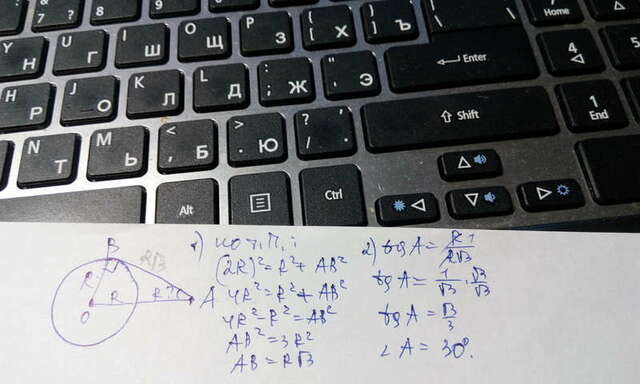 7
Home
Y Н
U Г
I Ш
O Щ
P З
{ [ Х
} ] Ъ
| \
4
H Р
J О
K Л
L Д
: ; Ж
" ' Э
Enter
1
End
N Т
M Ь
< , Б
> . Ю
? / .
Shift
Alt
Ctrl
B
R
R√3
R
R
O
A
1) по т. П.:
(2R)²=R²+AB²
4R²=R²+AB²
4R²-R²=AB²
AB²=3R²
AB=R√3
2) tg A = R 1 / R√3
tg A = 1/√3 · √3/√3
tg A = √3/3
∠A = 30°.